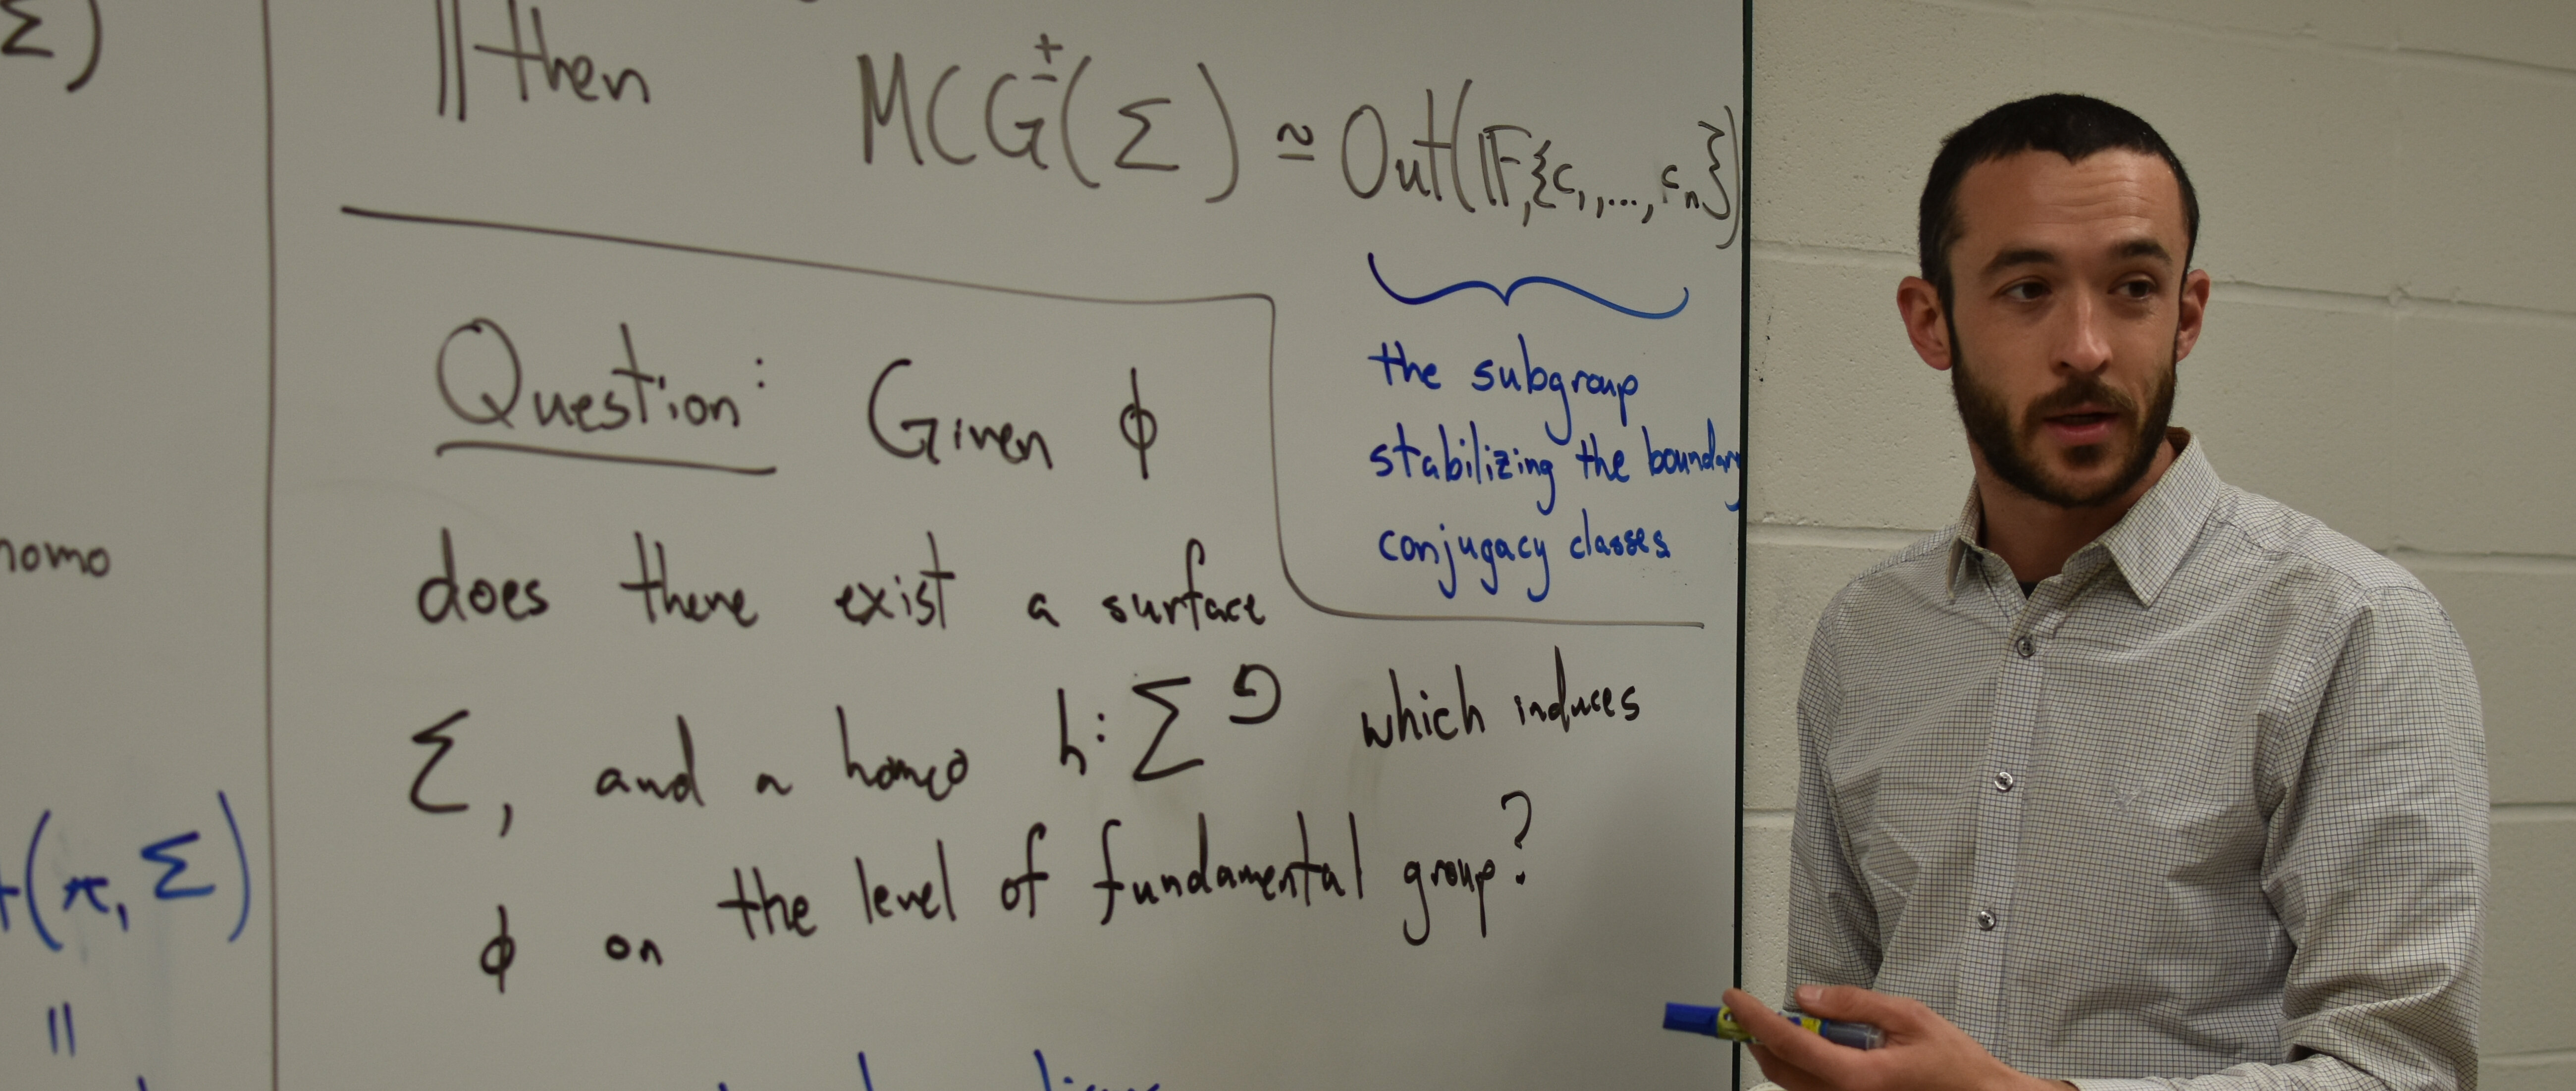 Σ)
homo
(π, Σ)
||
|| then MCG±(Σ) ≃ Out(𝔽,{c₁,...,cₙ})
the subgroup
stabilizing the boundary
conjugacy classes
Question: Given ϕ
does there exist a surface
Σ, and a homeo h: Σ ↺ which induces
ϕ on the level of fundamental group?